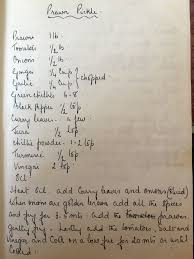 Prawn Pickle
Prawns 1 lb
Tomatoes 1/2 lb
Onions 1/2 lb
Ginger 1/4 cup } chopped
Garlic 1/4 cup
Green chillies 6-8
Black Pepper 1/2 tsp
Curry leaves a few
Jeera 1/2 tsp
Chillie powder 1-2 tsp
Turmeric 1/2 tsp
Vinegar 2 tbsp
Oil
Heat oil, add curry leaves and onions (sliced)
when onions are golden brown add all the spices
and fry for 3 mnts. Add the prawns
gently fry, lastly add the tomatoes, salt and
Vinegar and cook on a low fire for mnts or until
cooked